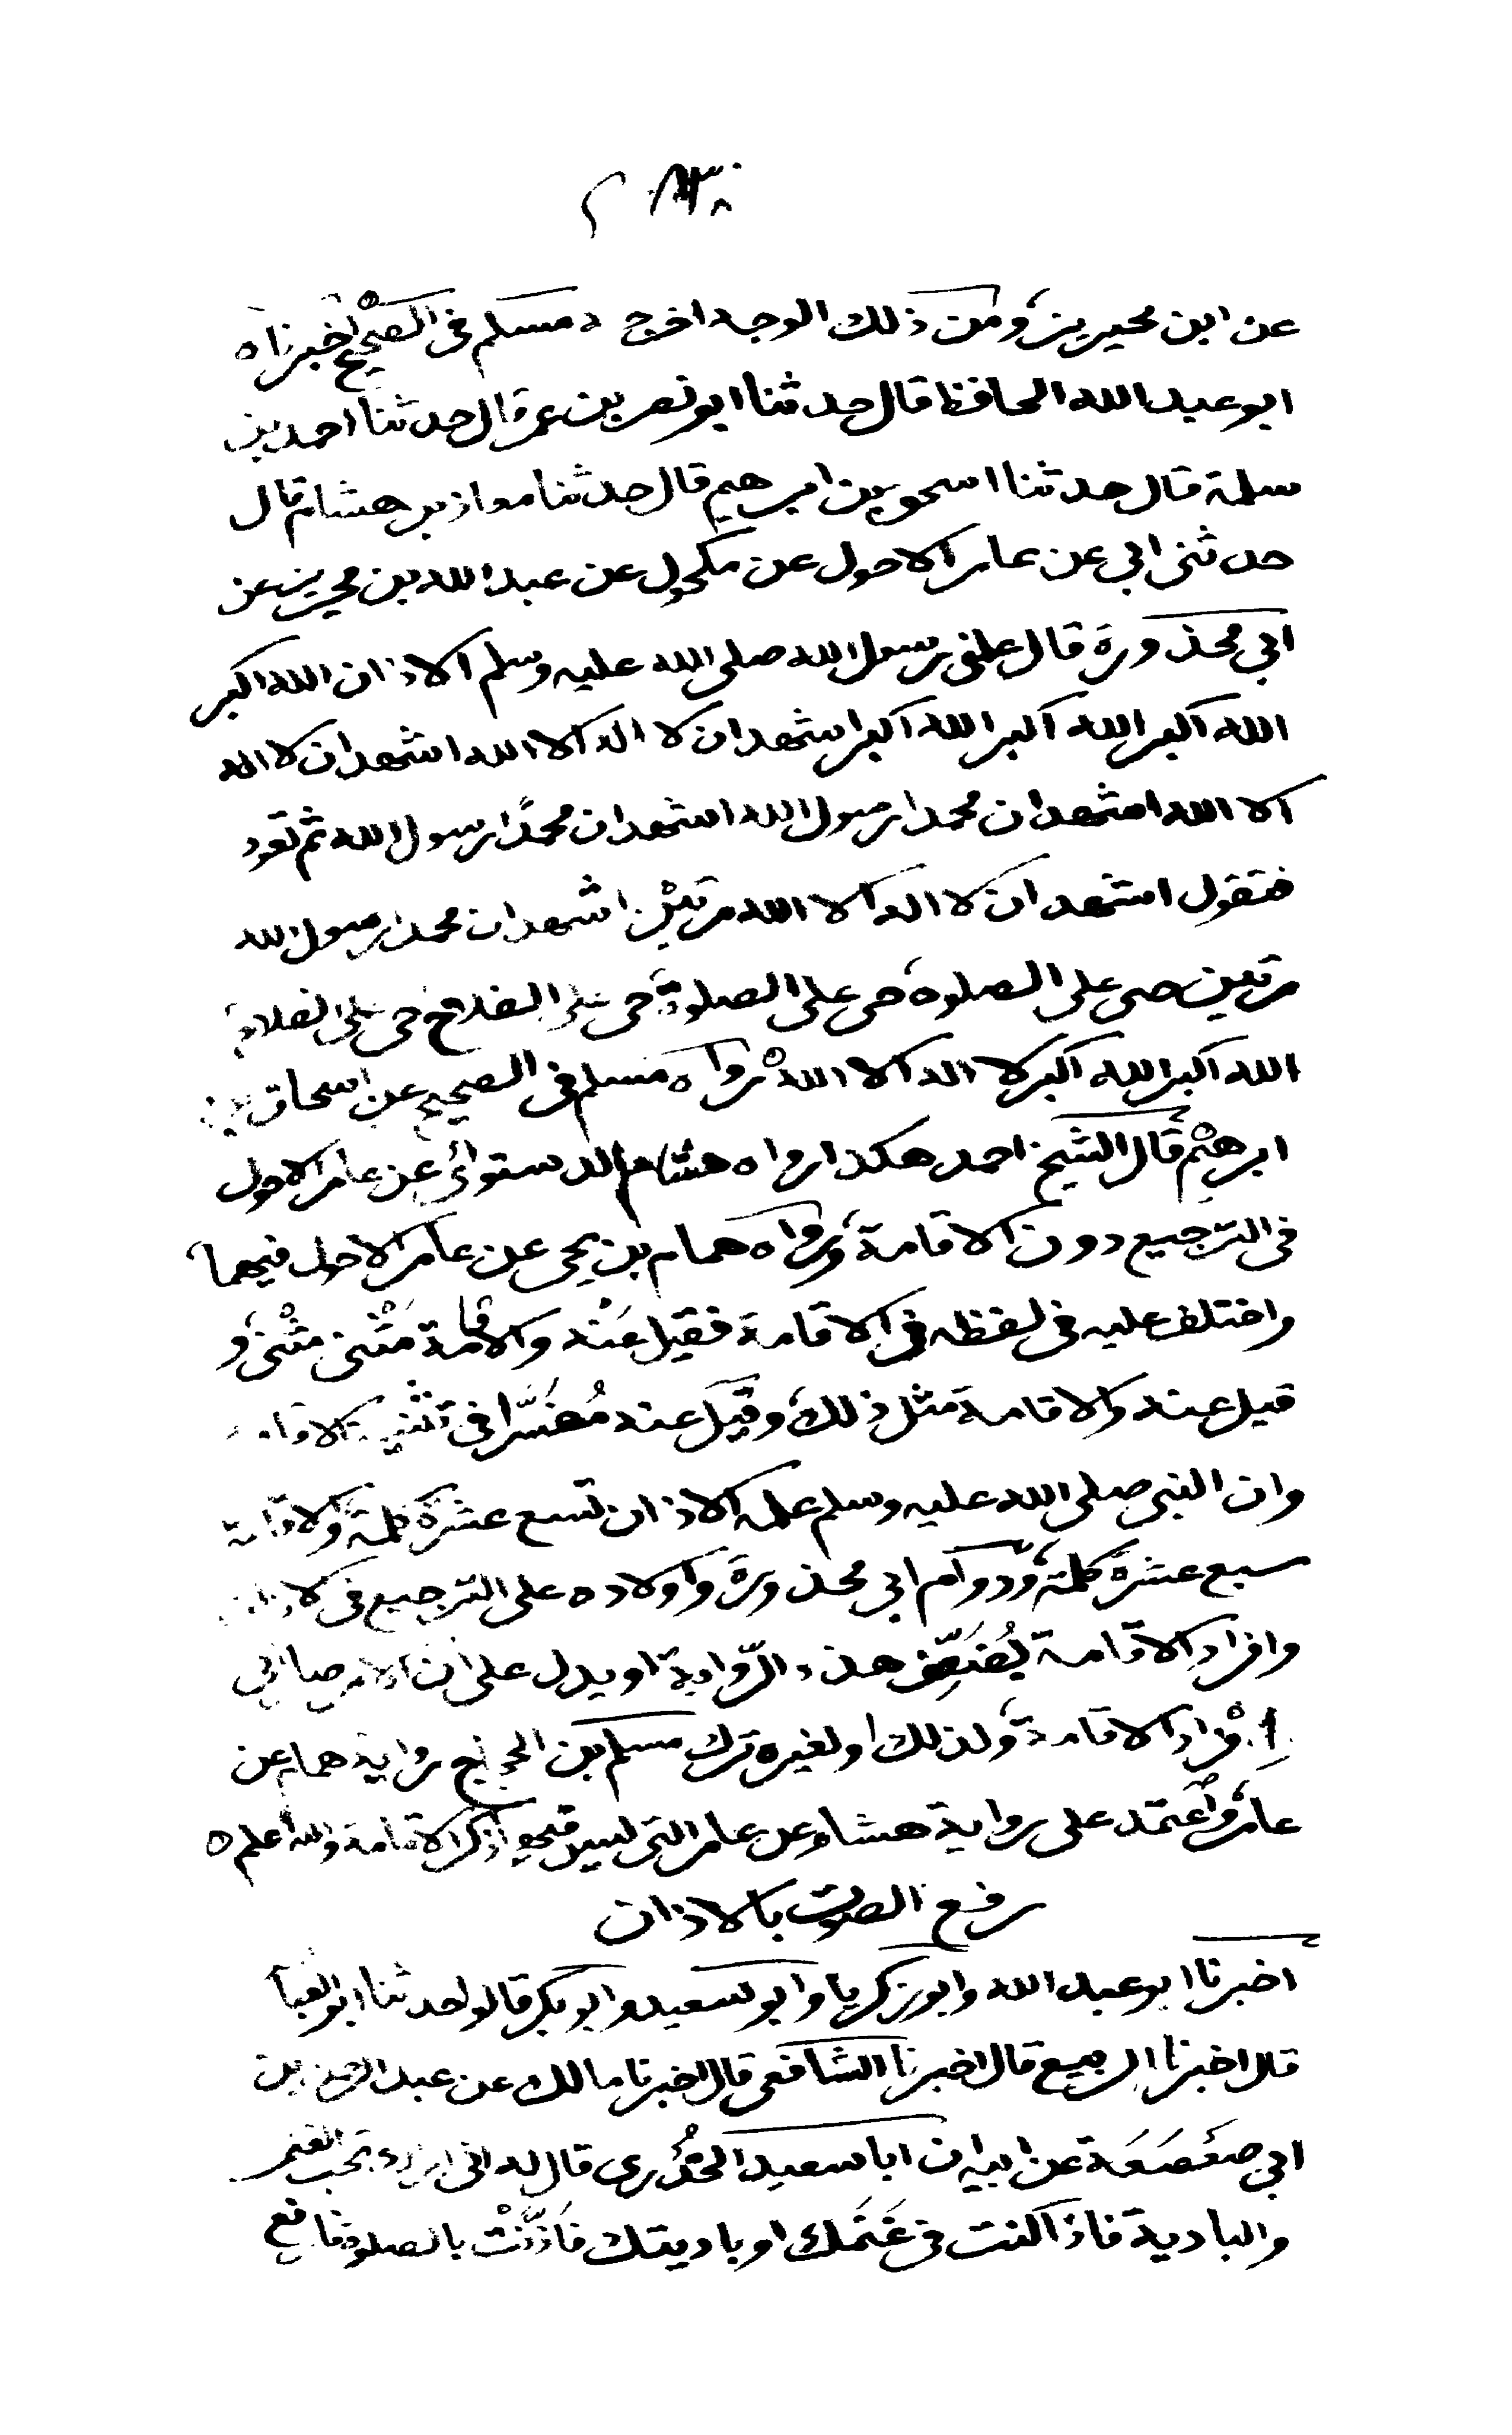 عن ابن محيريز ومن ذلك الوجه اخرجه مسلم في الصحيح اخبرناه
ابو عبد الله الحافظ قال حدثنا ابو نصر بن عمر قال حدثنا احمد بن
سلمة قال حدثنا اسحق بن ابرهيم قال حدثنا معاذ بن هشام قال
حدثنى ابي عن عامر الاحول عن مكحول عن عبد الله بن محيريز عن
ابي محذورة قال علمني رسول الله صلى الله عليه وسلم الاذان الله اكبر
الله اكبر الله اكبر الله اكبر اشهد ان لا اله الا الله اشهد ان لا اله
الا الله اشهد ان محمدا رسول الله اشهد ان محمدًا رسول الله ثم تعود
فتقول اشهد ان لا اله الا الله مرتين اشهد ان محمدا رسول الله
مرتين حى على الصلوة حى على الصلوة حى على الفلاح حى على الفلاح
الله اكبر الله اكبر لا اله الا الله رواه مسلم في الصحيح عن اسحاق بن
ابرهيم قال الشيخ احمد هكذا رواه هشام الدستوائي عن عامر الاحول
في الترجيع دون الاقامة ورواه همام بن يحى عن عامر الاحول فيهما
واختلف عليه في لفظه في الاقامة فقيل عنه والاقامة مثنى مثنى و
قيل عنه والاقامة مثل ذلك وقيل عنه مُفسَّرا في تثنية الاقامة
وان النبي صلى الله عليه وسلم علمه الاذان تسع عشرة كلمة والاقامة
سبع عشرة كلمة ودوام ابي محذورة واولاده على الترجيع في الاذان
وافراد الاقامة يُضَعِّف هذه الرّواية او يدل على ان الامر صار الى
افراد الاقامة ولذلك او لغيره ترك مسلم بن الحجاج رواية همام عن
عامر واعتمد على رواية هشام عن عامر التي ليس فيها ذكر الاقامة والله اعلم ه
رفع الصوت بالاذان
اخبرنا ابو عبد الله وابو زكريا وابو سعيد وابو بكر قالوا حدثنا ابو العبا
قال اخبرنا الربيع قال اخبرنا الشافعى قال اخبرنا مالك عن عبد الرحمن بن
ابي صَعصَعَة عن ابيه ان ابا سعيد الخدُرى قال له انى اراك تحب الغنم
والبادية فاذا كنت في غَنَمك او باديتك فَاَذَّنْت بالصلوة فارفع